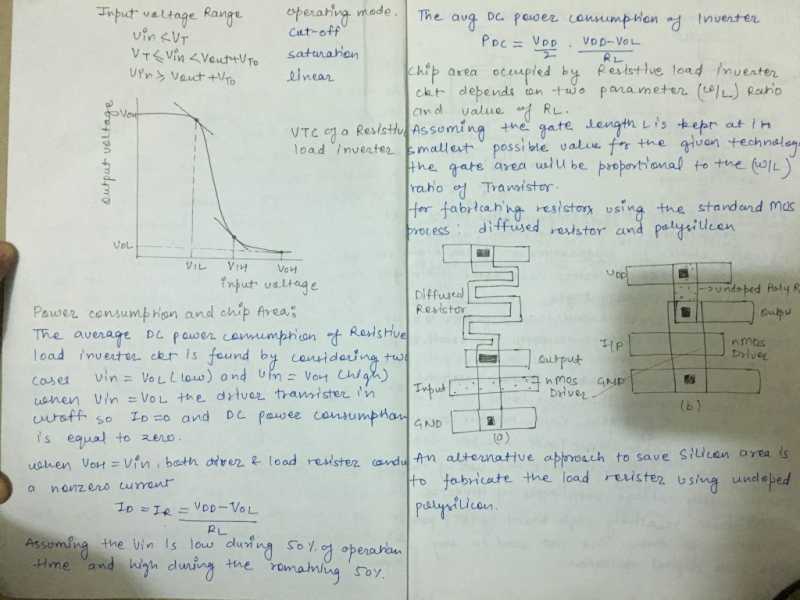 Input voltage Range operating mode.
Vin < VT cut-off
VT ≤ Vin < Vout + VTo saturation
Vin ≥ Vout + VTo linear
output voltage
VOH
VTC of a Resistive
load inverter
VOL
VIL VIH VOH
input voltage
Power consumption and chip Area:
The average DC power consumption of Resistive
load inverter ckt is found by considering two
cases Vin = VOL (low) and Vin = VOH (high)
when Vin = VOL the driver transister in
cutoff so ID = 0 and DC power consumption
is equal to zero.
when VOH = Vin, both driver & load resister condu
a nonzero current
ID = IR = VDD - VOL
RL
Assuming the Vin is low during 50% of operation
time and high during the remaining 50%.
The avg DC power consumption of Inverter
PDC = VDD/2 . VDD - VOL
RL
Chip area occupied by Resistive load inverter
ckt depends on two parameter (W/L) Ratio
and value of RL.
Assuming the gate length L is kept at its
smallest possible value for the given technology
the gate area will be proportional to the (W/L)
ratio of Transistor.
for fabricating resistors using the standard MOS
process: diffused resistor and polysilicon
Diffused
Resistor
output
Input
nMOS
Driver
GND
(a)
VDD
undoped Poly R
output
I/P
nMOS
Driver
GND
(b)
An alternative approach to save silicon area is
to fabricate the load resister using undoped
polysilicon.